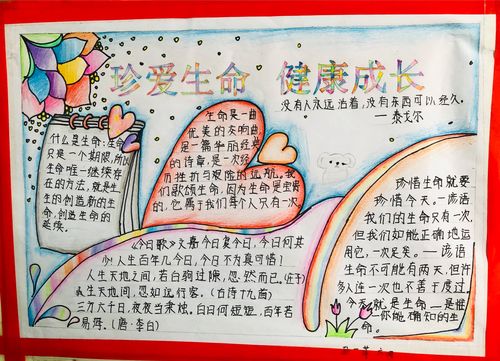 珍爱生命 健康成长
没有人永远活着,没有东西可以经久。
—泰戈尔
什么是生命:生命
只是一个期限,所以
生命唯一继续存
在的方法,就是生
生的创造新的生
命,创造生命的
延续。
生命是一曲
优美的交响曲,
是一篇华丽经典
的诗章,是一次经
历挫折与艰险的远航。我
们歌颂生命,因为生命是宝贵
的,它属于我们每个人只有一次
珍惜生命就要
珍惜今天。—谚语
我们的生命只有一次,
但我们如能正确地运
用它,一次足矣。—谚语
生命不可能有两天,但许
多人连一次也不善于度过。
今天就是生命—是唯
你能确知的生
命。
《今日歌》文嘉今日复今日,今日何其
少!人生百年几今日,今日不为真可惜!
人生天地之间,若白驹过隙,忽然而已。(庄子)
人生天地间,忽如远行客,(古诗十九首)
三万六千日,夜夜当秉烛。白日何短短,百年苦
易满。(唐·李白)